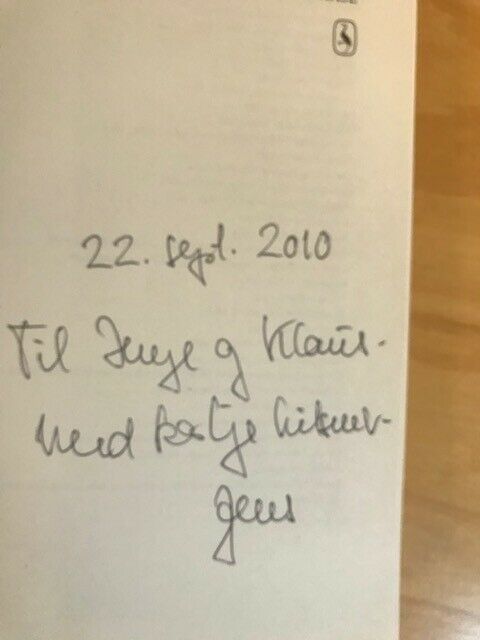 22. sept. 2010
Til Inge og Klaus.
Med hilsner-
Jens